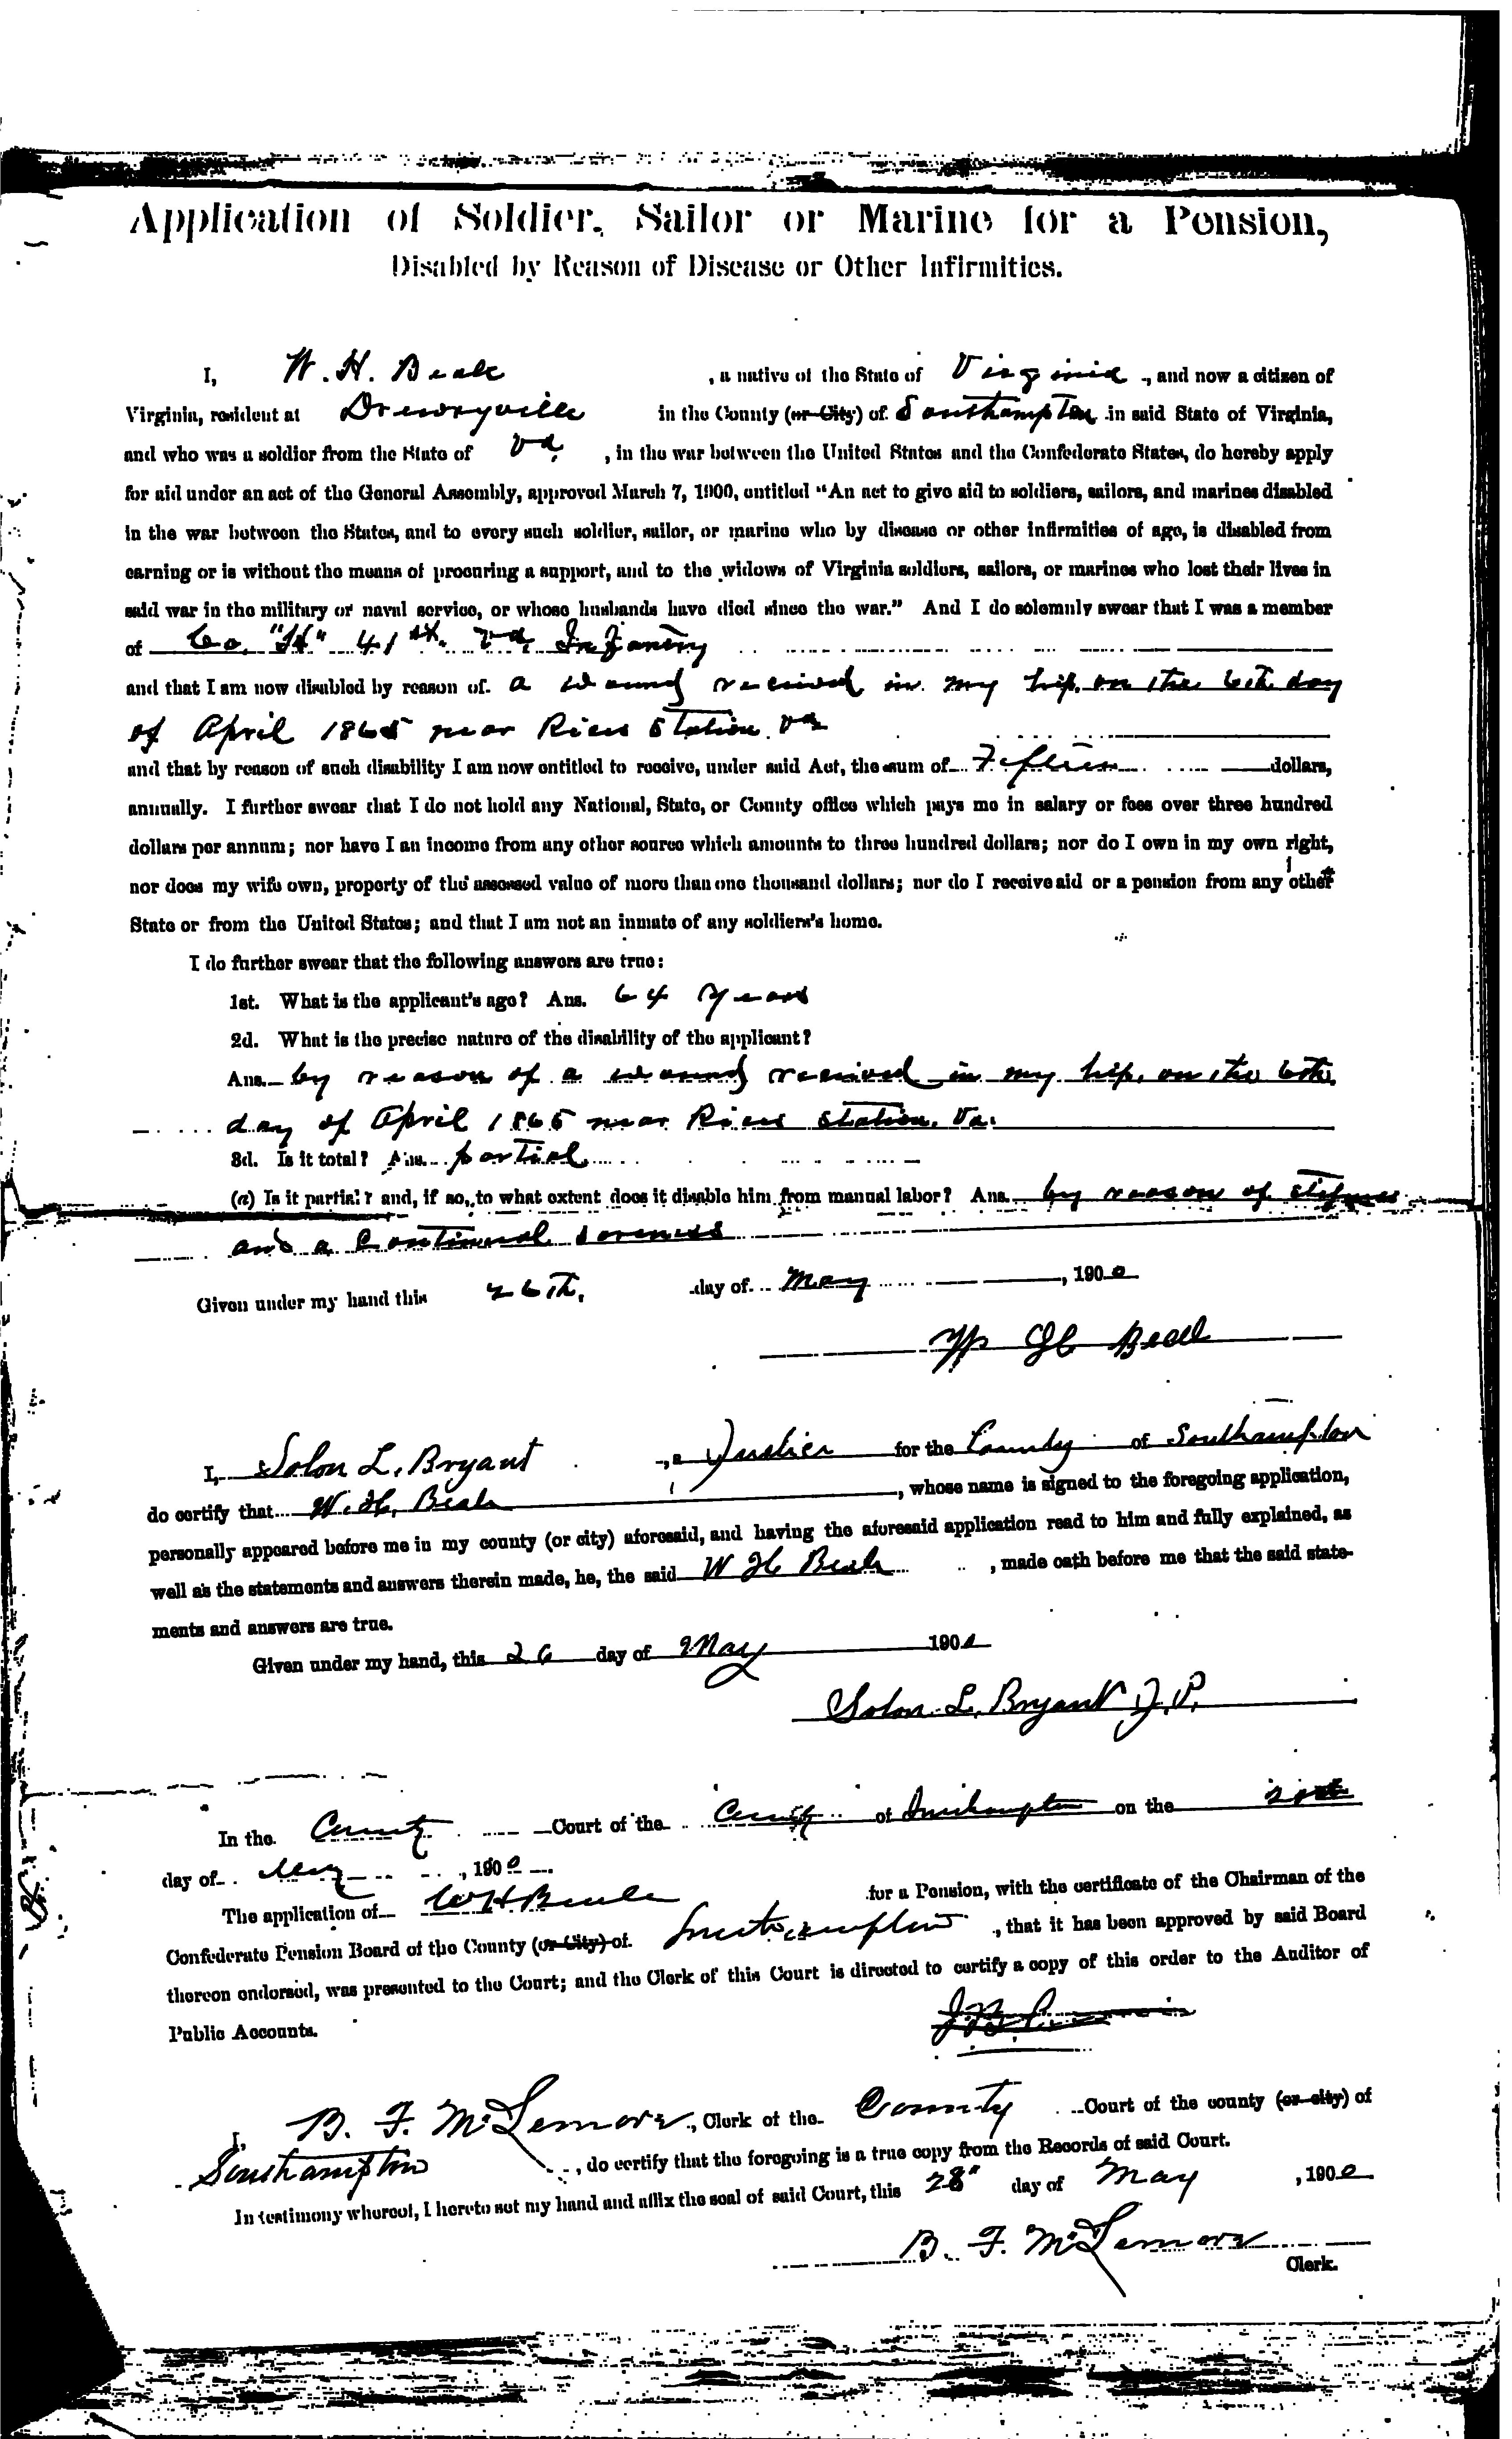 Application of Soldier, Sailor or Marine for a Pension,
Disabled by Reason of Disease or Other Infirmities.
I, W. H. Beale , a native of the State of Virginia , and now a citizen of
Virginia, resident at Drewryville in the County (or City) of Southampton in said State of Virginia,
and who was a soldier from the State of Va. , in the war between the United States and the Confederate States, do hereby apply
for aid under an act of the General Assembly, approved March 7, 1900, entitled “An act to give aid to soldiers, sailors, and marines disabled
in the war between the States, and to every such soldier, sailor, or marine who by disease or other infirmities of age, is disabled from
earning or is without the means of procuring a support, and to the widows of Virginia soldiers, sailors, or marines who lost their lives in
said war in the military or naval service, or whose husbands have died since the war.” And I do solemnly swear that I was a member
of Co. "H" 41st. Va. Infantry
and that I am now disabled by reason of a wound received in my hip, on the 6th day
of April 1865 near Rices Station Va
and that by reason of such disability I am now entitled to receive, under said Act, the sum of Fifteen dollars,
annually. I further swear that I do not hold any National, State, or County office which pays me in salary or fees over three hundred
dollars per annum; nor have I an income from any other source which amounts to three hundred dollars; nor do I own in my own right,
nor does my wife own, property of the assessed value of more than one thousand dollars; nor do I receive aid or a pension from any other
State or from the United States; and that I am not an inmate of any soldiers's home.
I do further swear that the following answers are true:
1st. What is the applicant's age? Ans. 64 years
2d. What is the precise nature of the disability of the applicant?
Ans. by reason of a wound received in my hip, on the 6th
day of April 1865 near Rices Station, Va.
3d. Is it total? Ans. partial
(a) Is it partial? and, if so, to what extent does it disable him from manual labor? Ans. by reason of stifness
and a Continual soreness
Given under my hand this 26th, day of May , 1900
W H Beale
I, Solon L. Bryant , a Justice for the County of Southampton
do certify that W. H. Beale , whose name is signed to the foregoing application,
personally appeared before me in my county (or city) aforesaid, and having the aforesaid application read to him and fully explained, as
well as the statements and answers therein made, he, the said W H Beale , made oath before me that the said state-
ments and answers are true.
Given under my hand, this 26 day of May 1900
Solon L. Bryant J. P.
In the County Court of the County of Southampton on the
day of May , 1900
The application of W H Beale for a Pension, with the certificate of the Chairman of the
Confederate Pension Board of the County (or City) of Southampton , that it has been approved by said Board
thereon endorsed, was presented to the Court; and the Clerk of this Court is directed to certify a copy of this order to the Auditor of
Public Accounts.
I, B. F. McLemore , Clerk of the County Court of the county (or city) of
Southampton , do certify that the foregoing is a true copy from the Records of said Court.
In testimony whereof, I hereto set my hand and affix the seal of said Court, this 28" day of May , 1900
B. F. McLemore
Clerk.